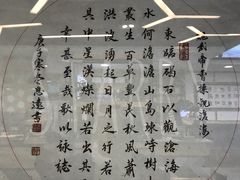 帝曹操觀滄海
東臨碣石以觀滄海
水何澹澹山島竦峙樹
叢生百草豐茂秋風蕭
洪波湧起日月之行若
其中星漢燦爛若出其
幸甚至哉歌以詠志
庚子寒冬思遠書